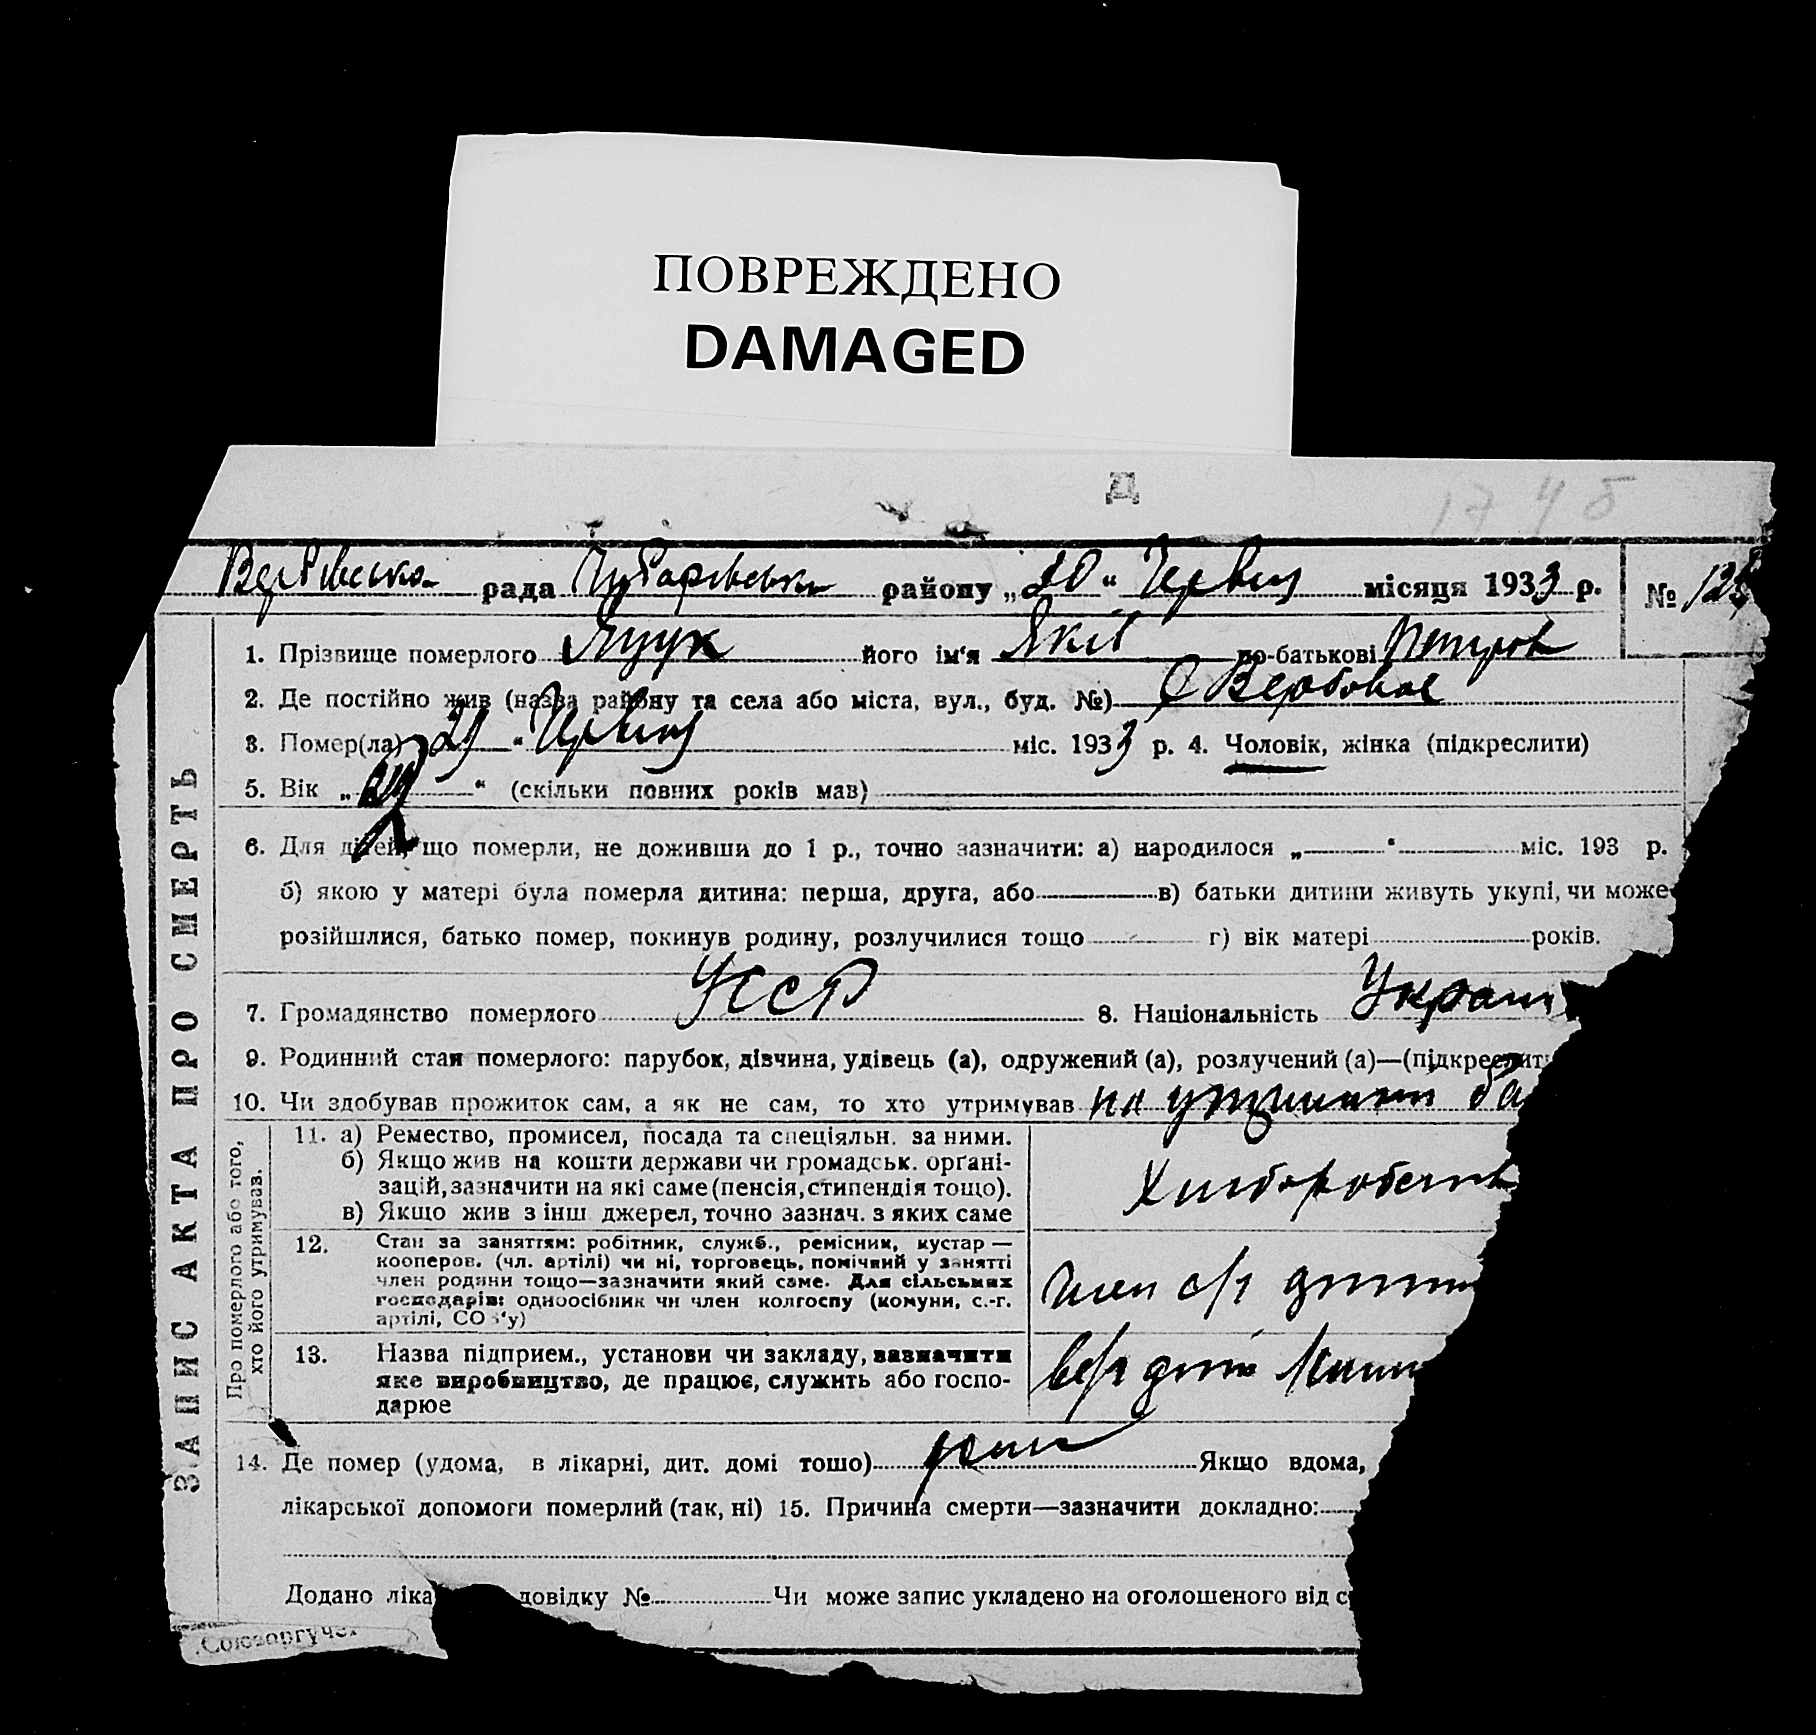 ПОВРЕЖДЕНО
DAMAGED
Д
17 4 б
Вербівська рада Чубарівськ району „20“ Червня місяця 1933 р. №
1. Прізвище померлого Яцук його ім‘я Яків по-батькові Петров
2. Де постійно жив (назва району та села або міста, вул., буд. №) С Вербове
3. Помер(ла) „ “ Червня міс. 1933 р. 4. Чоловік, жінка (підкреслити)
5. Вік „ “ (скільки повних років мав)
6. Для дітей, що померли, не доживши до 1 р., точно зазначити: а) народилося „ “ міс. 193 р.
б) якою у матері була померла дитина: перша, друга, або в) батьки дитини живуть укупі, чи може
розійшлися, батько помер, покинув родину, розлучилися тощо г) вік матері років.
7. Громадянство померлого УССР 8. Національність Україн
9. Родинний стан померлого: парубок, дівчина, удівець (а), одружений (а), розлучений (а)—(підкреслити
10. Чи здобував прожиток сам, а як не сам, то хто утримував на утриманні ба
Про померлого або того,
хто його утримував.
11. а) Ремество, промисел, посада та спеціяльн. за ними.
б) Якщо жив на кошти держави чи громадськ. орґані-
зацій, зазначити на які саме (пенсія, стипендія тощо).
в) Якщо жив з інш. джерел, точно зазнач. з яких саме
Хліборобств
12. Стан за заняттям: робітник, служб., ремісник, кустар —
кооперов. (чл. артілі) чи ні, торговець, помічний у занятті
член родини тощо—зазначити який саме. Для сільських
господарів: одноосібник чи член колгоспу (комуни, с.-г.
артілі, СОЗ‘у)
член с/г
13. Назва підприєм., установи чи закладу, зазначити
яке виробництво, де працює, служить або госпо-
дарює
14. Де помер (удома, в лікарні, дит. домі тощо) Якщо вдома,
лікарської допомоги померлий (так, ні) 15. Причина смерти—зазначити докладно:
Додано ліка довідку № Чи може запис укладено на оголошеного від с
Союзоргучет
ЗАПИС АКТА ПРО СМЕРТЬ